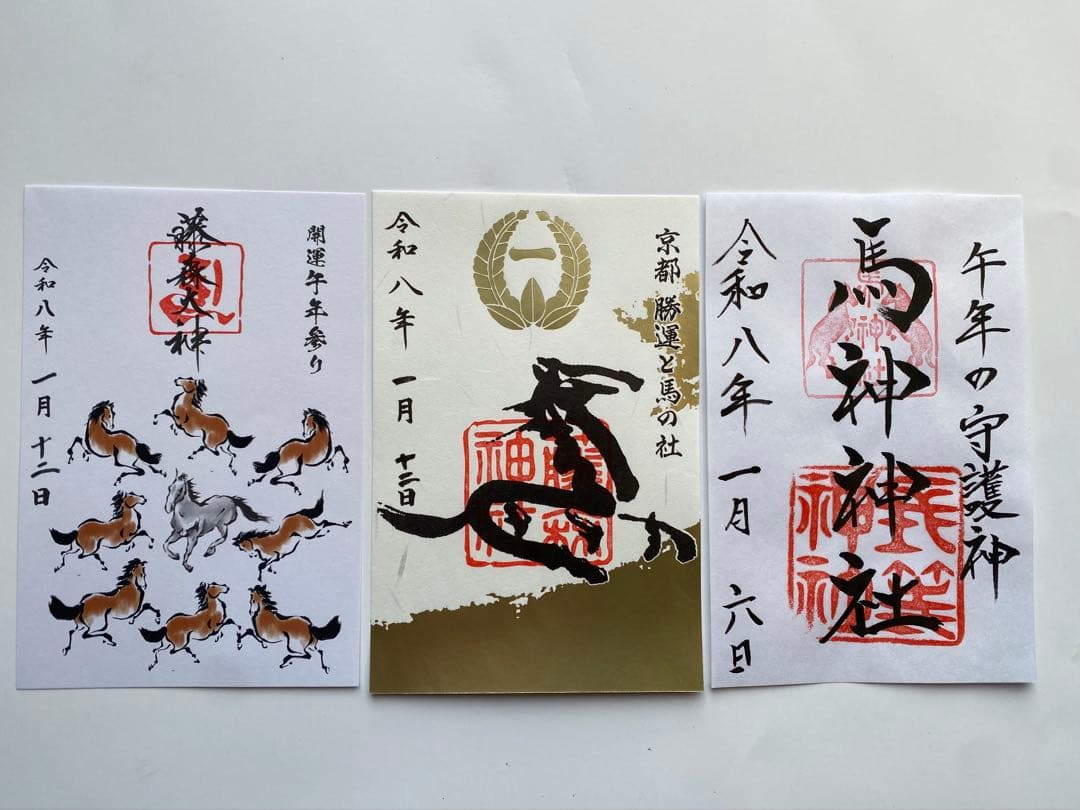 開運午年参り
藤森大神
令和八年 一月 十二日
京都 勝運と馬の社
一
藤森
神社
令和八年 一月 十二日
午年の守護神
馬神神社
令和八年 一月 六日